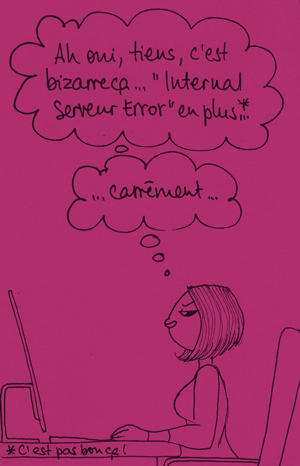 Ah oui, tiens, c'est
bizarre ça... "Internal
Serveur Error" en plus...*
... carrément ...
*C'est pas bon ça!